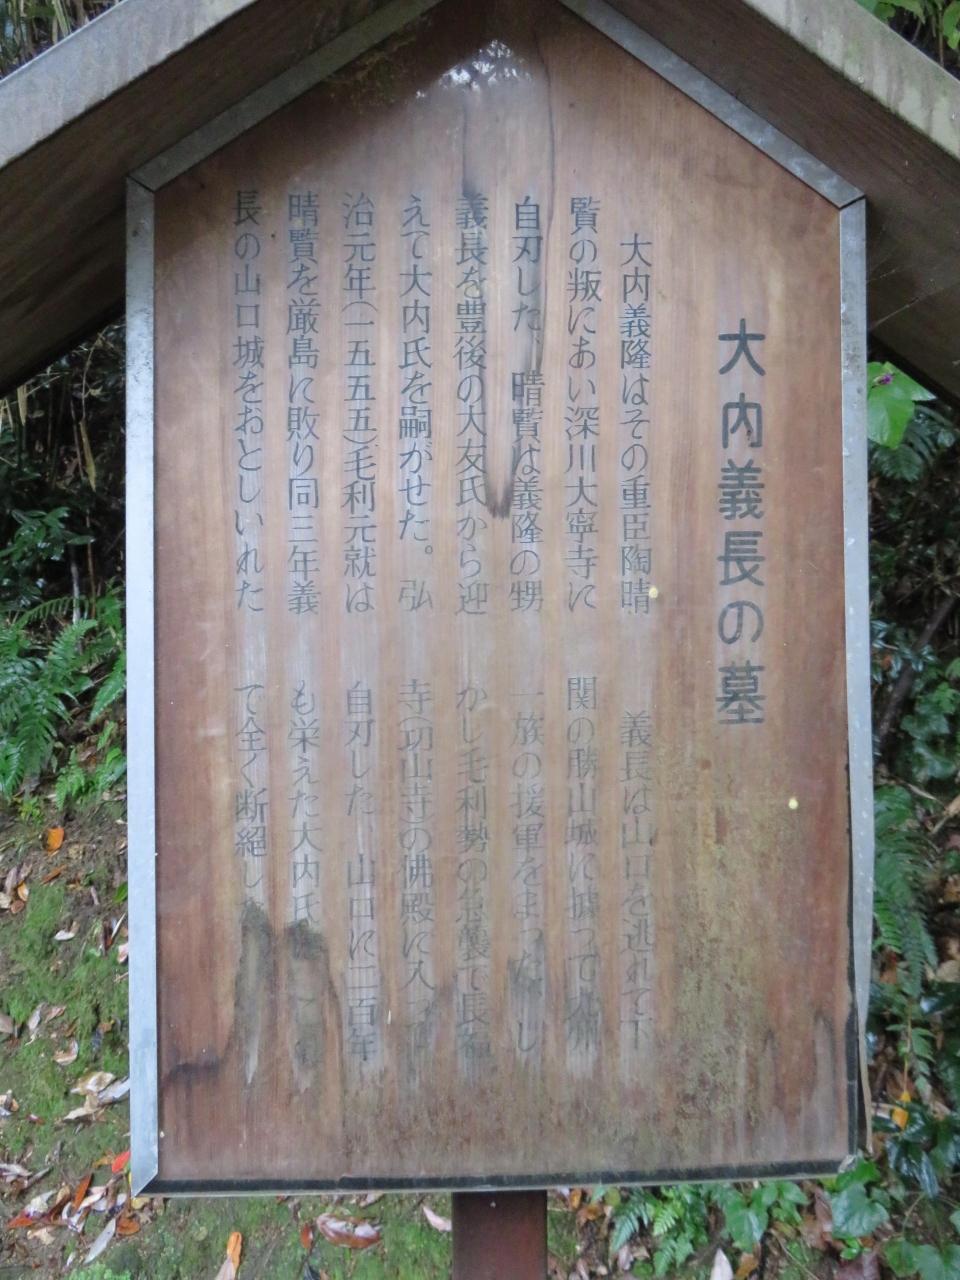 大内義長の墓
大内義隆はその重臣陶晴
賢の叛におい深川大寧寺に
自刃した、晴賢は義隆の甥
義長を豊後の大友氏から迎
えて大内氏を嗣がせた。弘
治元年(一五五五)毛利元就は
晴賢を厳島に敗り同三年義
長の山口城をおとしいれた
義長は山口を逃れて下
関の勝山城に據って九州
一族の援軍をまった、し
かし毛利勢の急襲で長福
寺(功山寺)の佛殿に入って
自刃した、山口に二百年
も栄えた大内氏
て全く断絶した